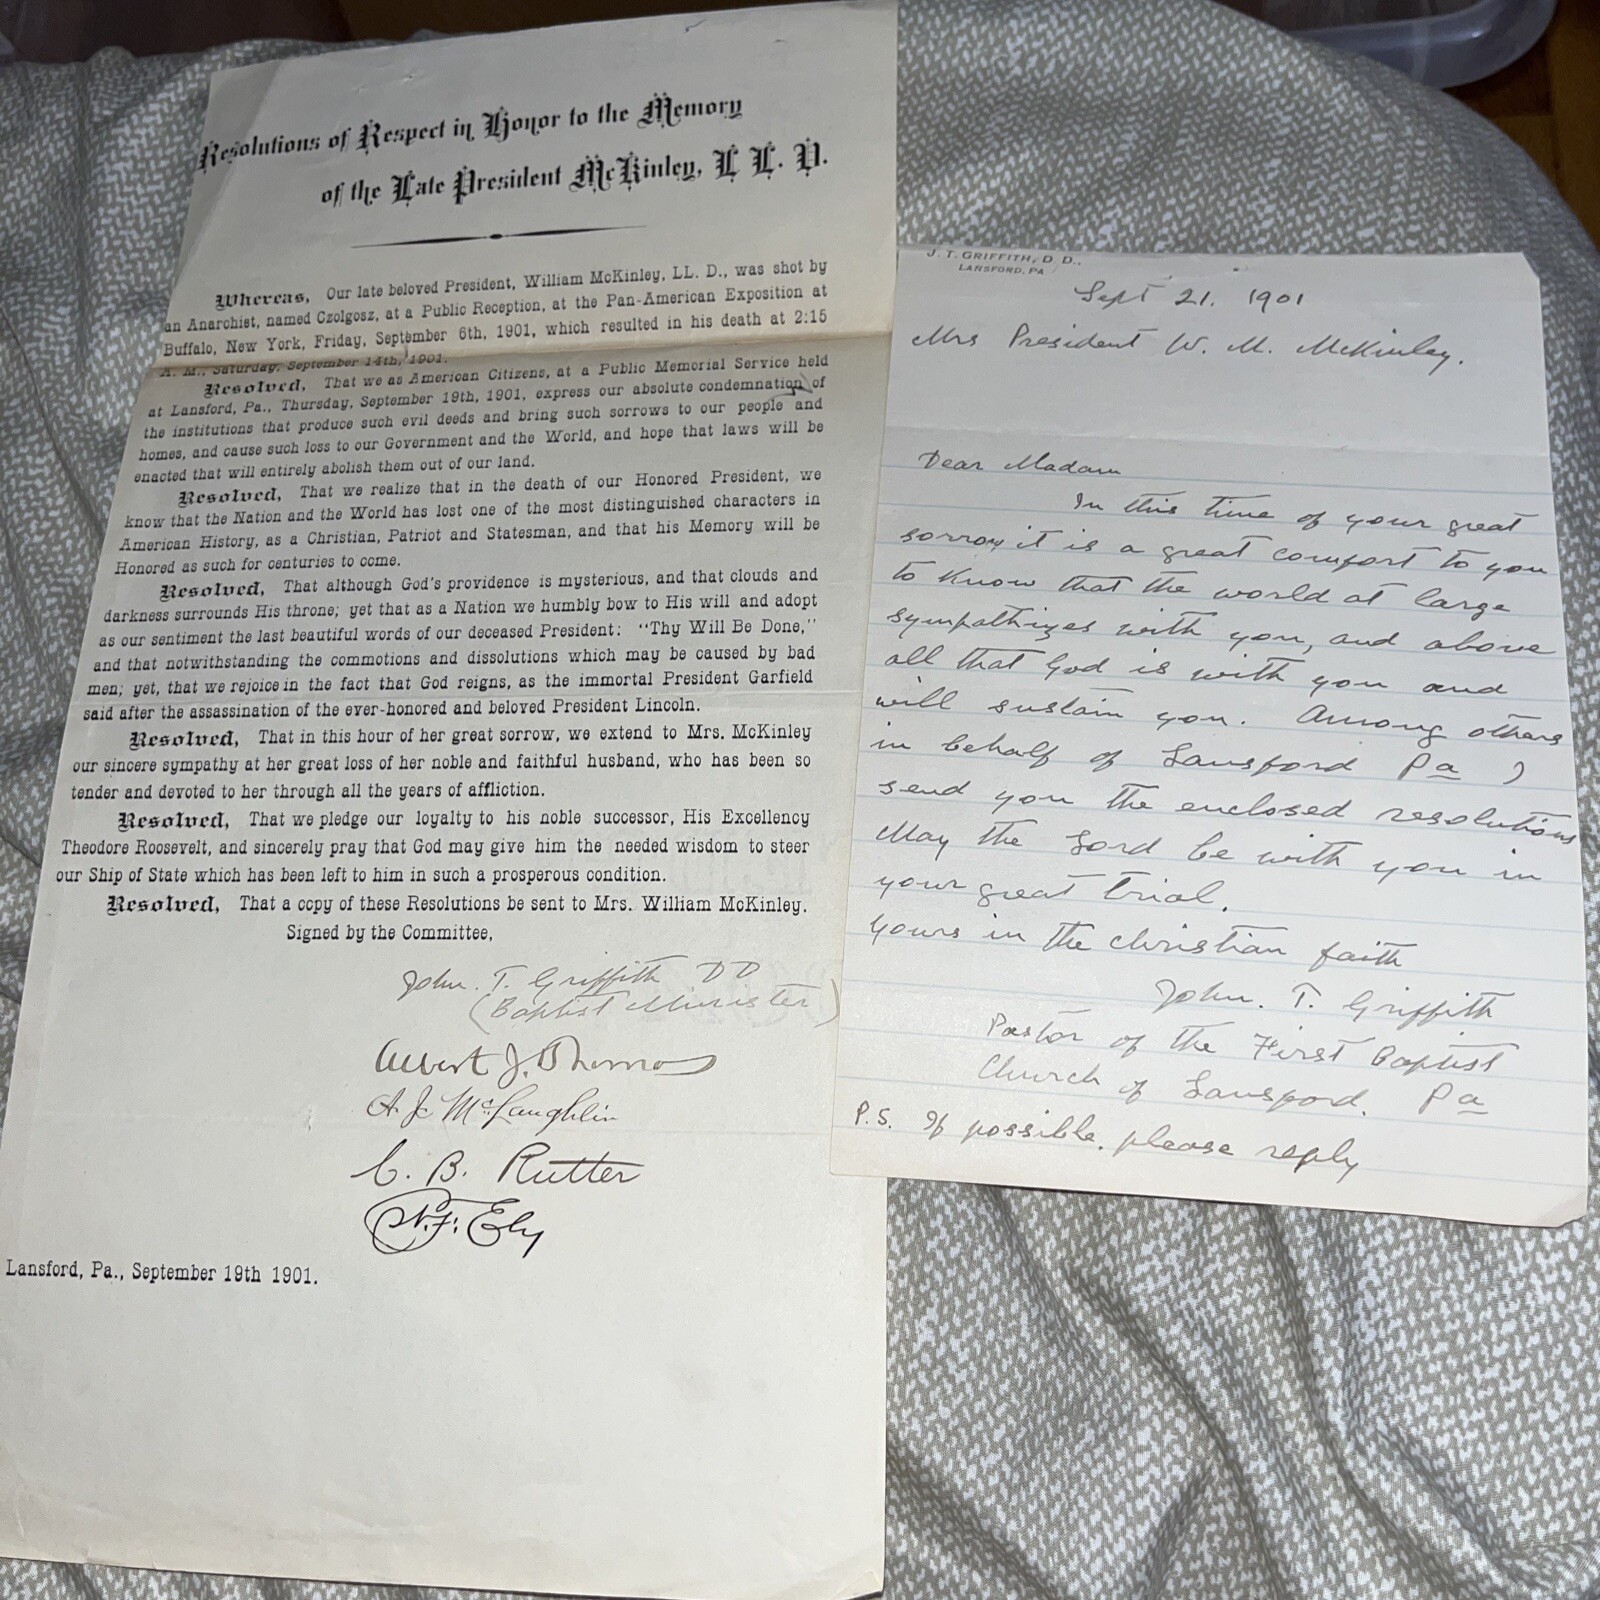 Resolutions of Respect in Honor to the Memory
of the Late President McKinley, L L. D.
Whereas, Our late beloved President, William McKinley, LL. D., was shot by
an Anarchist, named Czolgosz, at a Public Reception, at the Pan-American Exposition at
Buffalo, New York, Friday, September 6th, 1901, which resulted in his death at 2:15
A. M., Saturday, September 14th, 1901.
Resolved, That we as American Citizens, at a Public Memorial Service held
at Lansford, Pa., Thursday, September 19th, 1901, express our absolute condemnation of
the institutions that produce such evil deeds and bring such sorrows to our people and
homes, and cause such loss to our Government and the World, and hope that laws will be
enacted that will entirely abolish them out of our land.
Resolved, That we realize that in the death of our Honored President, we
know that the Nation and the World has lost one of the most distinguished characters in
American History, as a Christian, Patriot and Statesman, and that his Memory will be
Honored as such for centuries to come.
Resolved, That although God's providence is mysterious, and that clouds and
darkness surrounds His throne; yet that as a Nation we humbly bow to His will and adopt
as our sentiment the last beautiful words of our deceased President: "Thy Will Be Done,"
and that notwithstanding the commotions and dissolutions which may be caused by bad
men; yet, that we rejoice in the fact that God reigns, as the immortal President Garfield
said after the assassination of the ever-honored and beloved President Lincoln.
Resolved, That in this hour of her great sorrow, we extend to Mrs. McKinley
our sincere sympathy at her great loss of her noble and faithful husband, who has been so
tender and devoted to her through all the years of affliction.
Resolved, That we pledge our loyalty to his noble successor, His Excellency
Theodore Roosevelt, and sincerely pray that God may give him the needed wisdom to steer
our Ship of State which has been left to him in such a prosperous condition.
Resolved, That a copy of these Resolutions be sent to Mrs. William McKinley.
Signed by the Committee,
John. T. Griffith D D
(Baptist Minister)
Albert J. Thomas
A. J. McLaughlin
C. B. Rutter
N. F. Ely
Lansford, Pa., September 19th 1901.
J. T. GRIFFITH, D. D.,
LANSFORD, PA
Sept 21. 1901
Mrs President W. M. McKinley.
Dear Madam
In this time of your great
sorrow it is a great comfort to you
to know that the world at large
sympathizes with you, and above
all that God is with you and
will sustain you. Among others
in behalf of Lansford Pa I
send you the enclosed resolutions
May the Lord be with you in
your great trial.
Yours in the christian faith
John. T. Griffith
Pastor of the First Baptist
Church of Lansford. Pa
P.S. If possible. please reply